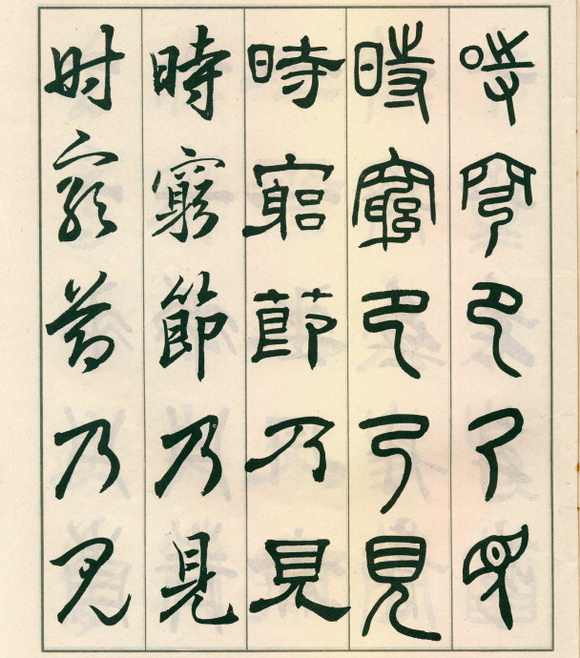 時窮卪乃見
時窮卪乃見
時窮節乃見
時窮節乃見
时穷节乃见